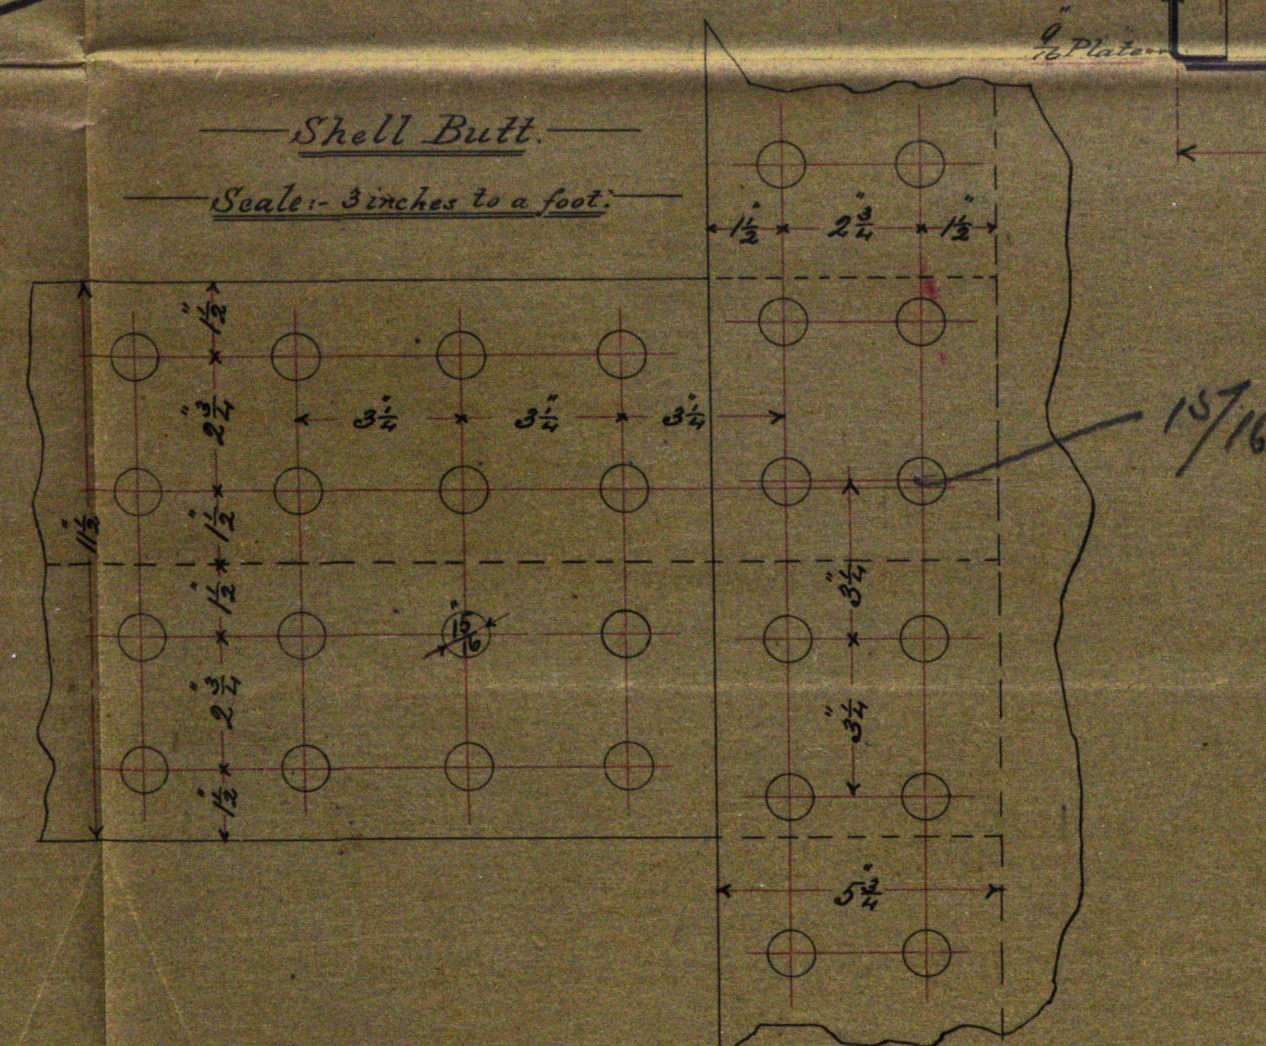 9/16" Plate
Shell Butt.
Scale:- 3 inches to a foot.
1½" 2¾" 1½"
1½"
2¾"
3¼" 3¼" 3¼"
15/16
11½"
1½"
1½"
3¼"
15/16"
2¾"
3¼"
1½"
5¾"